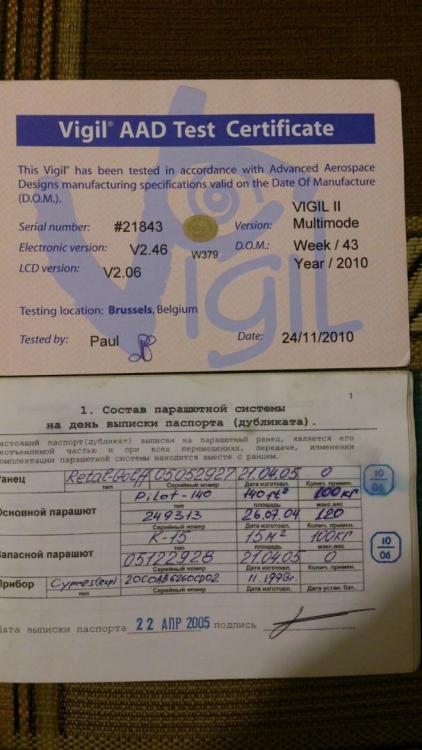 Vigil® AAD Test Certificate
This Vigil® has been tested in accordance with Advanced Aerospace
Designs manufacturing specifications valid on the Date Of Manufacture
(D.O.M.).
Serial number: #21843 Version: VIGIL II Multimode
Electronic version: V2.46 W379 D.O.M.: Week / 43
LCD version: V2.06 Year / 2010
Testing location: Brussels, Belgium
Tested by: Paul Date: 24/11/2010
Vigil
1
1. Состав парашютной системы
на день выписки паспорта (дубликата).
настоящий паспорт(дубликат) выписан на парашютный ранец, является его
неотъемлемой частью и при всех перемещениях, передаче, изменении
комплектации парашютной системы находится вместе с ранцем.
Ранец 05052927 21.04.05 0 10 06
тип Серийный номер Дата изготовл. Колич. примен.
Pilot-140 140 ft² 100кг
Основной парашют тип площадь макс.вес
249313 26.07.04 120
Серийный номер Дата изготовл. Колич. примен.
K-15 15м² 100кг 10 06
Запасной парашют тип площадь макс.вес
05122928 21.04.05 0
Серийный номер Дата изготовл. Колич. примен.
Прибор Cypres(exp) 11.1993г.
тип Серийный номер Дата изготовл. Дата устан. бат.
Дата выписки паспорта 22 АПР 2005 подпись